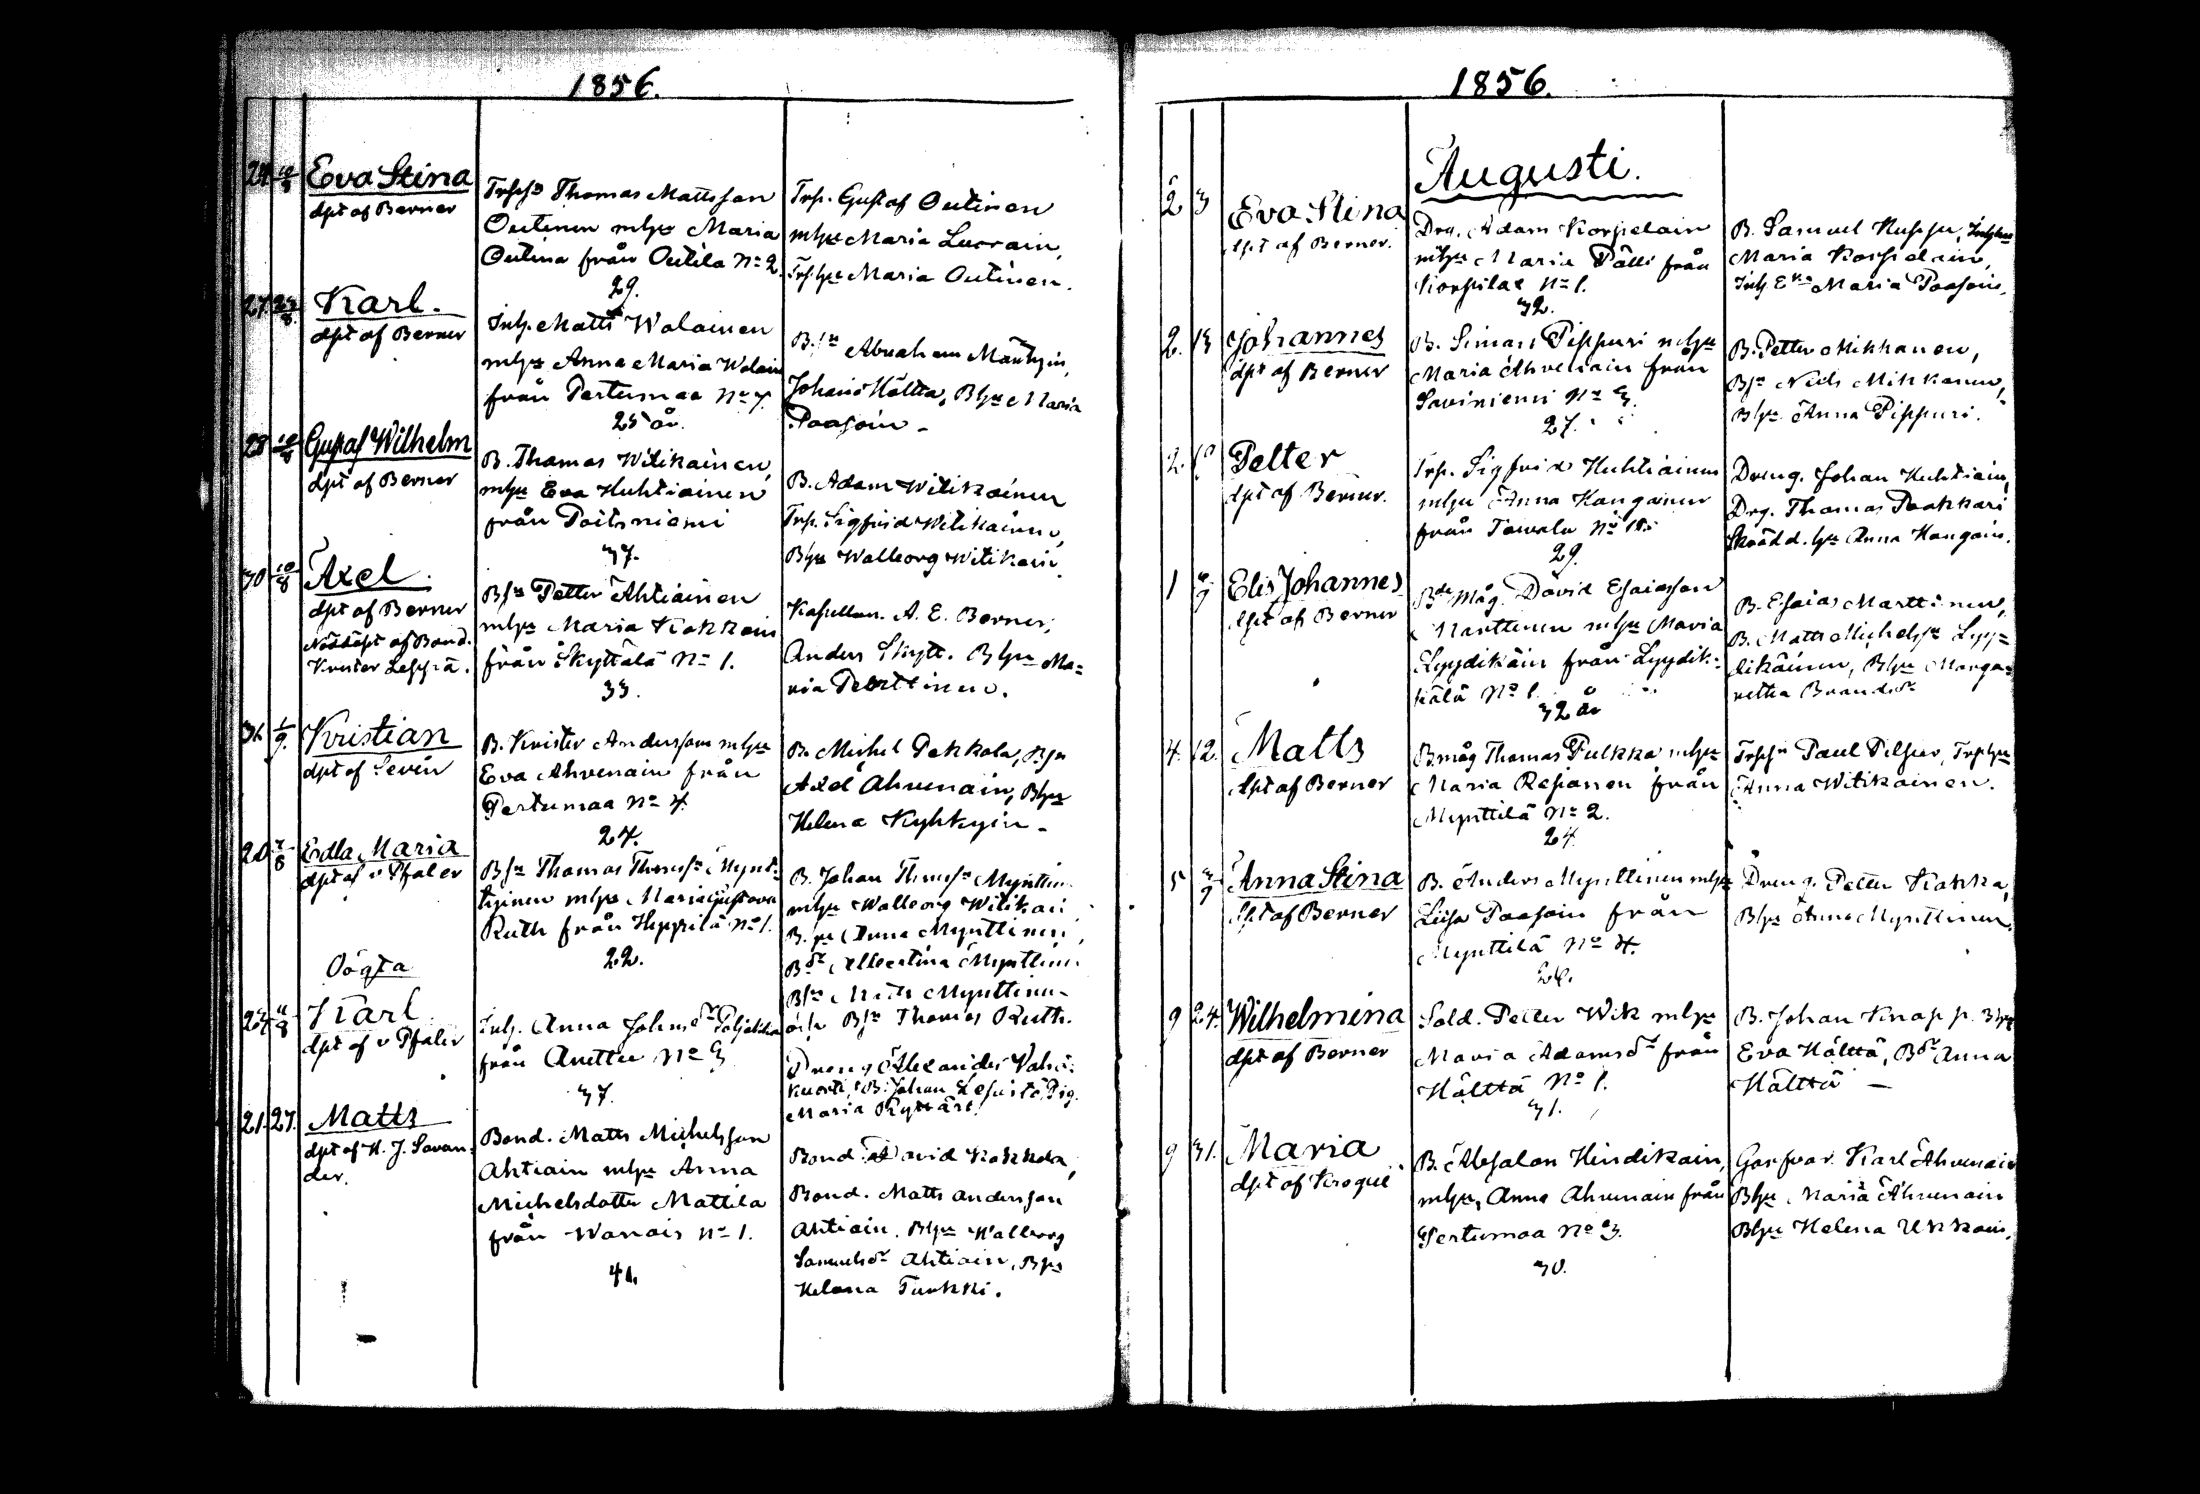 1856.
24 10/8 Eva Stina
dpt af Berner
Trpsn Thomas Mattsson
Outinen mhu Maria
Outina från Outila No 2.
29.
Trp. Gustaf Outinen
mhu Maria
Trphu Maria Outinen.
27. 8 Karl.
dpt af Berner
Inh. Matts Walainen
mhu Anna Maria Walain
från Pertumaa No 7.
25 år.
B.sn Abraham Mäntyin,
Johan Hölttä, Bhu Maria
Paasoin -
28 10/8 Gustaf Wilhelm
dpt af Berner
B. Thomas Witikainen
mhu Eva Huhtiainen
från Poitsniemi
37.
B. Adam Witikainen
Trp. Sigfrid Witikainen,
Bhu Walborg Witikain
30 10/8 Axel.
dpt af Berner
Nöddöpt af Bond.
Krister Leppä.
Bsn Petter Ahtiainen
mhu Maria Kokkoin
från Skyttälä No 1.
33.
Kapellan. A. E. Berner,
Anders Skytt. Bhu Ma-
ria Perttinen.
31. 1/9. Kristian
dpt af Sevén
B. Krister Andersson mhu
Eva Ahvenain från
Pertumaa No 4.
24.
B. Michel Pekkola, Bsn
Axel Ahvenain, Bhu
Helena Kyhkyin -
20 8 Edla Maria
dpt af v Pfaler
Bsn Thomas Thomss. Mynt-
tinen mhu Maria Gustava
Ruth från Heppilä No 1.
22.
B. Johan Thomss Mynttin
mhu Walborg Witikai
B. hu Anna Mynttinen,
B.dr Albertina Mynttin
Bsn Matts Mynttinen
och Bsn Thomas Ruth.
Oägta
24 11/8 Karl
dpt af v Pfaler
Inh. Anna Johansdr
från Anttu No 3
37.
Dreng Alexander
B. Johan Pig.
Maria
21. 27. Matts
dpt af H. J. Savan-
der.
Bond. Matts Michelsson
Ahtiain mhu Anna
Michelsdotter Mattila
från Wanais No 1.
41.
Bond. David Kokkola,
Bond. Matts Andersson
Ahtiain. Bhu Walborg
Samuelsdr Ahtiain, Bhu
Helena Turkki.
1856.
Augusti.
2 3 Eva Stina
dpt af Berner.
Drg. Adam Korpelain
mhu Maria Pälli från
Korpilax No 1.
32.
B. Samuel
Maria Korpelain,
Inh. Maria Paasoin,
2. 13 Johannes
dpt af Berner
B. Simon Pippuri mhu
Maria Ahvenain från
Saviniemi No 3.
27.
B. Petter Mikkanen,
Bsn Nils Mikkanen,
Bhu Anna Pippuri.
2. 10 Petter
dpt af Berner.
Trp. Sigfrid Huhtiainen
mhu Anna Kangainen
från Tawala No 15.
29.
Dreng. Johan Huhtiain,
Drg. Thomas Paakkari
Skrädd. hu Anna Kangain.
1 9 Elis Johannes
dpt af Berner
Bde måg. David Esaiasson
Marttinen mhu Maria
Lyydikäin från Lyydik-
kälä No 1.
32 år
B. Esaias Marttinen,
B. Matts Michelss Lyy-
dikäinen, Bhu Marga-
retha Brandsdr
4. 12. Matts
dpt af Berner
B måg Thomas Pulkka mhu
Maria Reponen från
Mynttilä No 2.
24.
Trpsn Paul Pilspur, Trphu
Anna Witikainen.
5 9 Anna Stina
dpt af Berner
B. Anders Mynttinen mhu
Liisa Paasoin från
Mynttilä No 4.
Dreng. Petter Kokka,
Bhu Anna Mynttinen.
9 24. Wilhelmina
dpt af Berner
Sold. Petter Wik mhu
Maria Adamsdr från
Hölttä No 1.
31.
B. Johan Knapp. Bhu
Eva Hölttä, Bdr Anna
Hölttä -
9 31. Maria
dpt af Krogii
B. Absalon Hindikain,
mhu, Anna Ahvenain från
Pertumaa No 3.
30.
Garfvar. Karl Ahvenain
Bhu Maria Ahvenain
Bhu Helena Ukkoin.